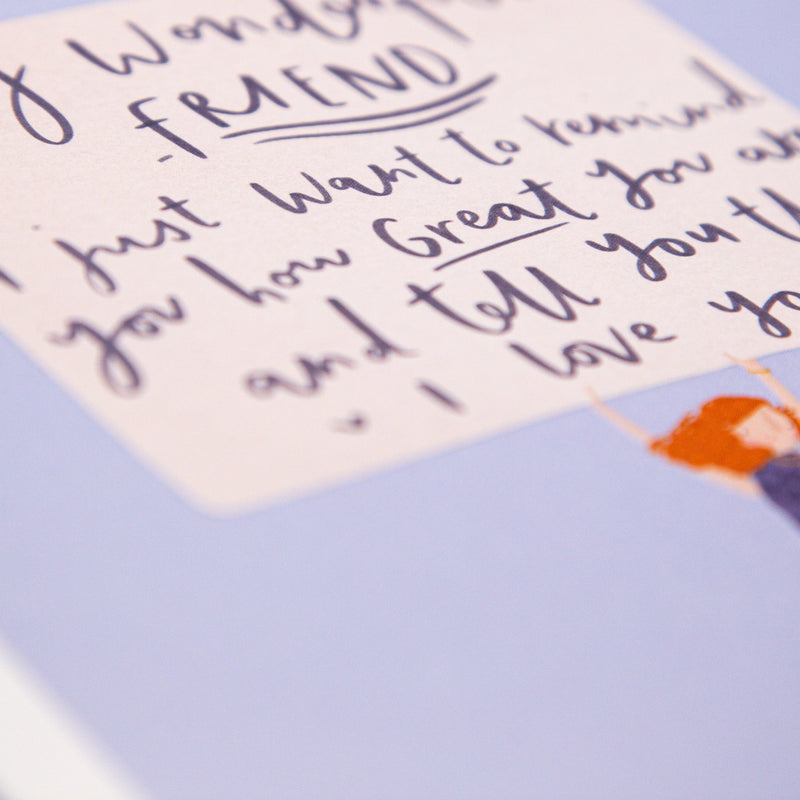 y Wonderfu
FRIEND
I just want to remind
you how Great you are
and tell you th
I love yo